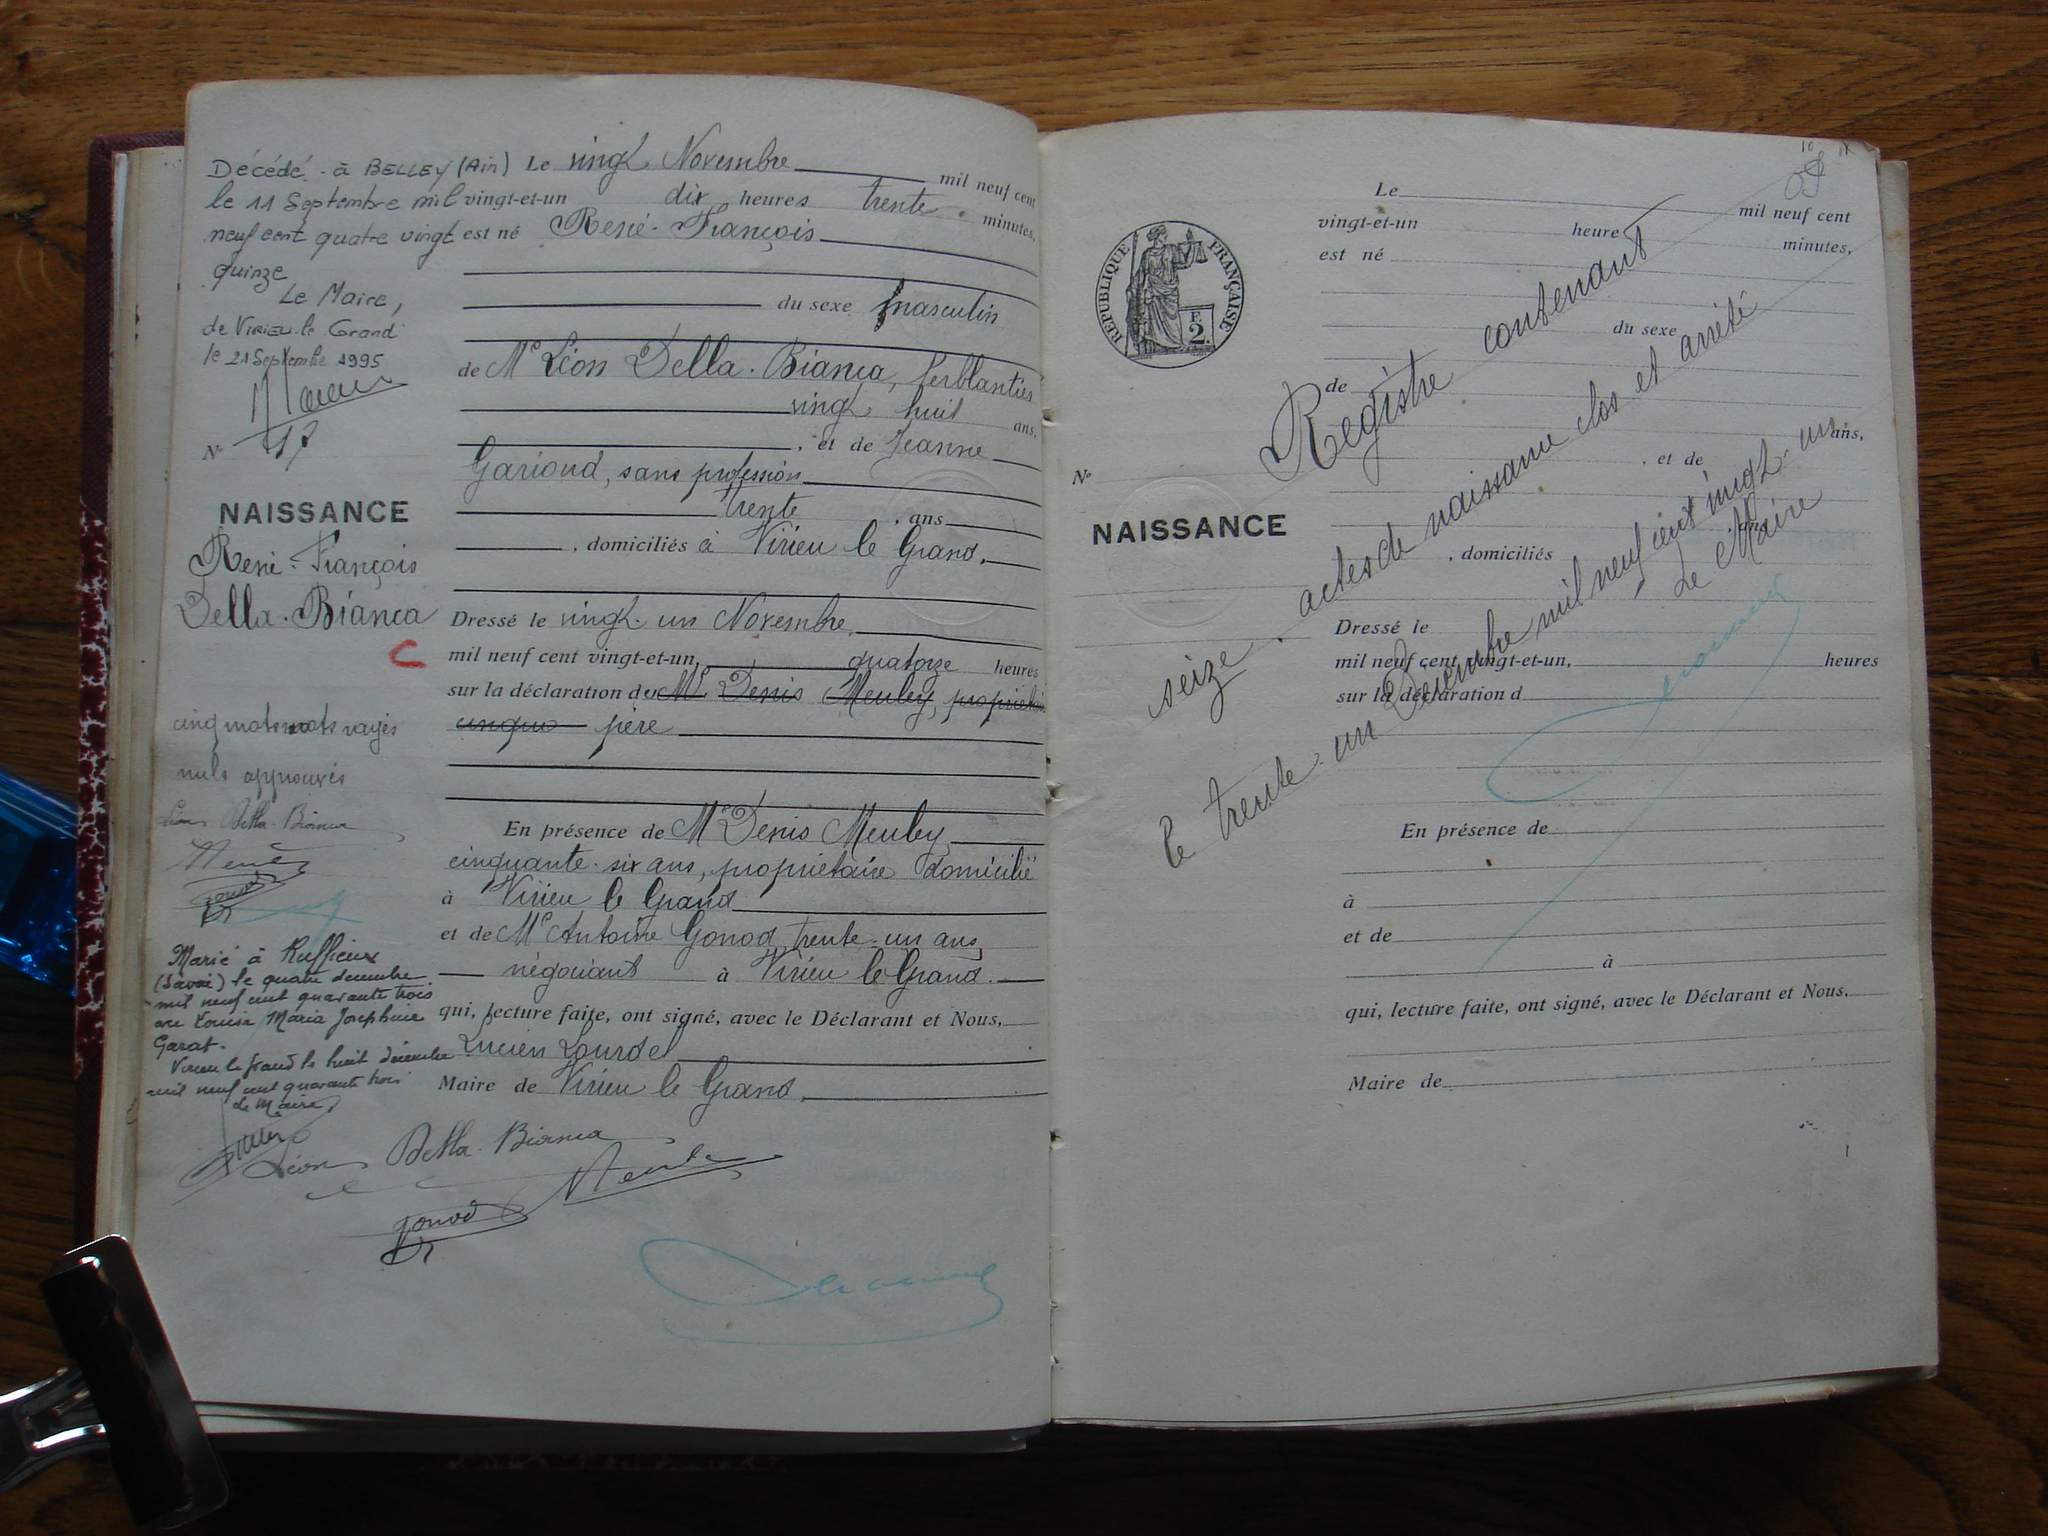 Décédé à BELLEY (Ain)
le 11 Septembre mil
neuf cent quatre vingt
quinze
Le Maire,
de VIRIEU-le Grand
le 21 Septembre 1995
N° 17
NAISSANCE
René-François
Della-Bianca
C
cinq mots mots rayés
nuls approuvés
Léon Della-Bianca
Gonod
Marié à Ruffieux
(Savoie) le quatre décembre
mil neuf cent quarante trois
avec Louise Maria Josephine
Garat.
Virieu le Grand le huit décembre
mil neuf cent quarante trois
Le Maire
Le vingt Novembre mil neuf cent
vingt-et-un dix heures trente minutes,
est né René-François
du sexe masculin
de Mr Léon Della-Bianca, ferblantier
vingt huit ans,
, et de Jeanne
Gariond, sans profession
trente , ans
, domiciliés à Virieu le Grand,
Dressé le vingt-un Novembre
mil neuf cent vingt-et-un, quatorze heures
sur la déclaration du Mr Denis Meuley, propriétaire
père
En présence de Mr Denis Meuley
cinquante-six ans, propriétaire domicilié
à Virieu le Grand
et de Mr Antoine Gonod, trente-un ans,
négociant à Virieu le Grand.
qui, lecture faite, ont signé, avec le Déclarant et Nous,
Lucien Lourdel
Maire de Virieu le Grand,
Léon Della-Bianca
Gonod
REPUBLIQUE FRANÇAISE
F.
2.
N°
NAISSANCE
Le mil neuf cent
vingt-et-un heure minutes,
est né
du sexe
de
ans,
, et de
ans
, domiciliés
Dressé le
mil neuf cent vingt-et-un, heures
sur la déclaration d
En présence de
à
et de
à
qui, lecture faite, ont signé, avec le Déclarant et Nous,
Maire de
Registre contenant
seize actes de naissance clos et arrêté
le trente-un Décembre mil neuf cent vingt-un
Le Maire